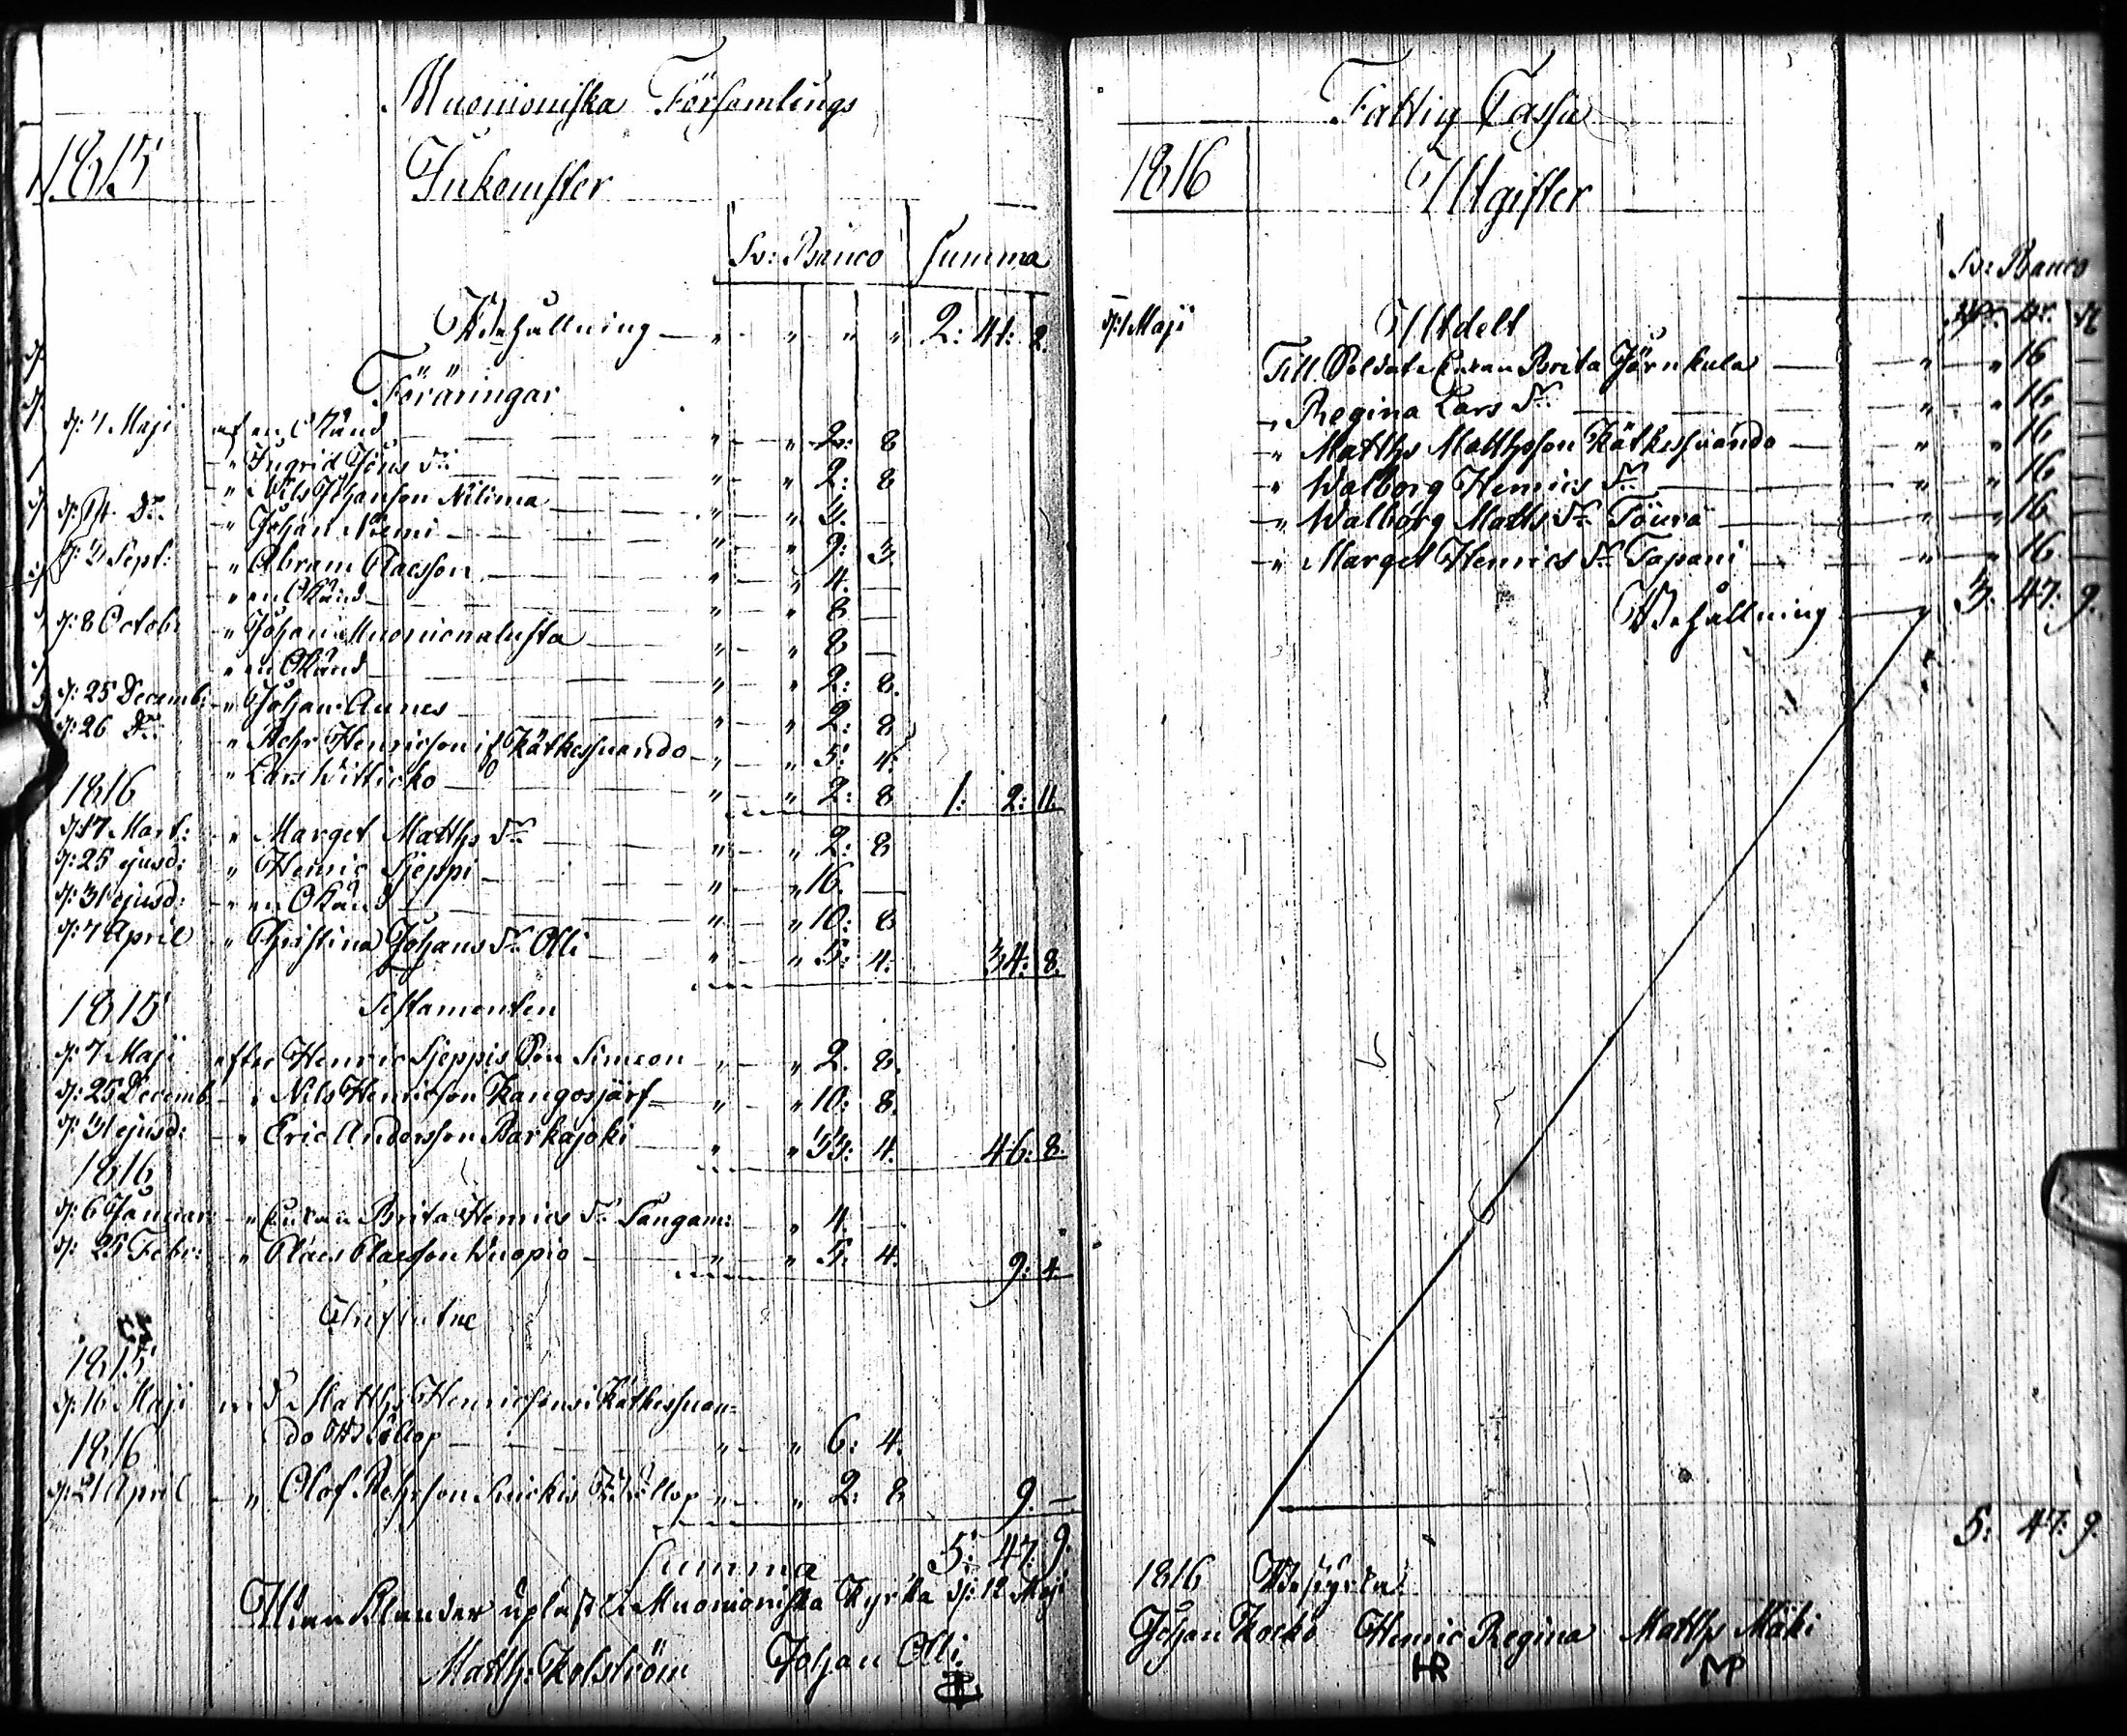 Muonioniska Församlings
1815 Inkomster
Sv: Banco Summa
Behållning — " " " " 2: 41: 2.
Föräringar
d: 7 Maji af en Okänd " " 2: 8
" Ingrid Jöns dr. " " 2: 8
" Nils Johanson Nilima " " 3. —
d: 14 do. " Johan Niemi " " 9: 3.
d: 3 Sept: " Abram Claesson " " 4. —
" en Okänd " " 8 —
d: 8 Octob: " Johan Muonionalusta " " 8 —
" en Okänd " " 2: 8.
d: 25 Decemb: " Johan Aunes " " 2: 8
d: 26 do. " Pehr Henricson i Kätkesuando " " 5: 4.
1816 " Lars Witticko " " 2: 8 1: 2: 11.
d: 17 Mart: " Marget Matths dr. " " 2: 8
d: 25 ejusd: " Henric Sjeppi " " 16. —
d: 31 ejusd: " en Okänd " " 10: 8
d: 7 April " Christina Johans dr. Olli " " 5: 4. 34: 8.
1815 Testamenten
d: 7 Maji efter Henric Sjeppis Son Simeon " " 2. 8.
d: 25 Decemb " Nils Henricson Kangosjärf " " 10: 8.
d: 31 ejusd: " Eric Andersson Parkajoki " " 33: 4. 46: 8.
1816
d: 6 Januar: " Enkan Brita Henrics dr. Sangam: " 4. —
d: 25 Febr: " Claes Claesson Wuopio " " 5. 4. 9: 4.
1815
d: 16 Maji Matths Henricsons i Kätkesuan=
1816 do Bröllop " " 6: 4.
d: 21 April " Olof Pehrson Bröllop " " 2: 8 9. —
Summa 5: 47: 9.
upläst i Muonioniska Kyrka d: 12 Maji
Matth: Kolström Johan Olli
Fattig Cassa
1816 Utgifter
Sv: Banco
d: 1 Maji Utdelt
Till Soldate Enkan Brita Järnkula " " 16 —
" Regina Lars dr. " " 16 —
" Matths Matthsson Kätkesuando " " 16 —
" Walborg Henrics dr. " " 16 —
" Walborg Matts dr. Töurä " " 16 —
" Marget Henrics dr. Tapani " " 16. —
Behållning 3. 47: 9.
5: 47: 9
1816 Bestyrka:
Johan Kocko Henric Regina Matths Mäki
HR MP